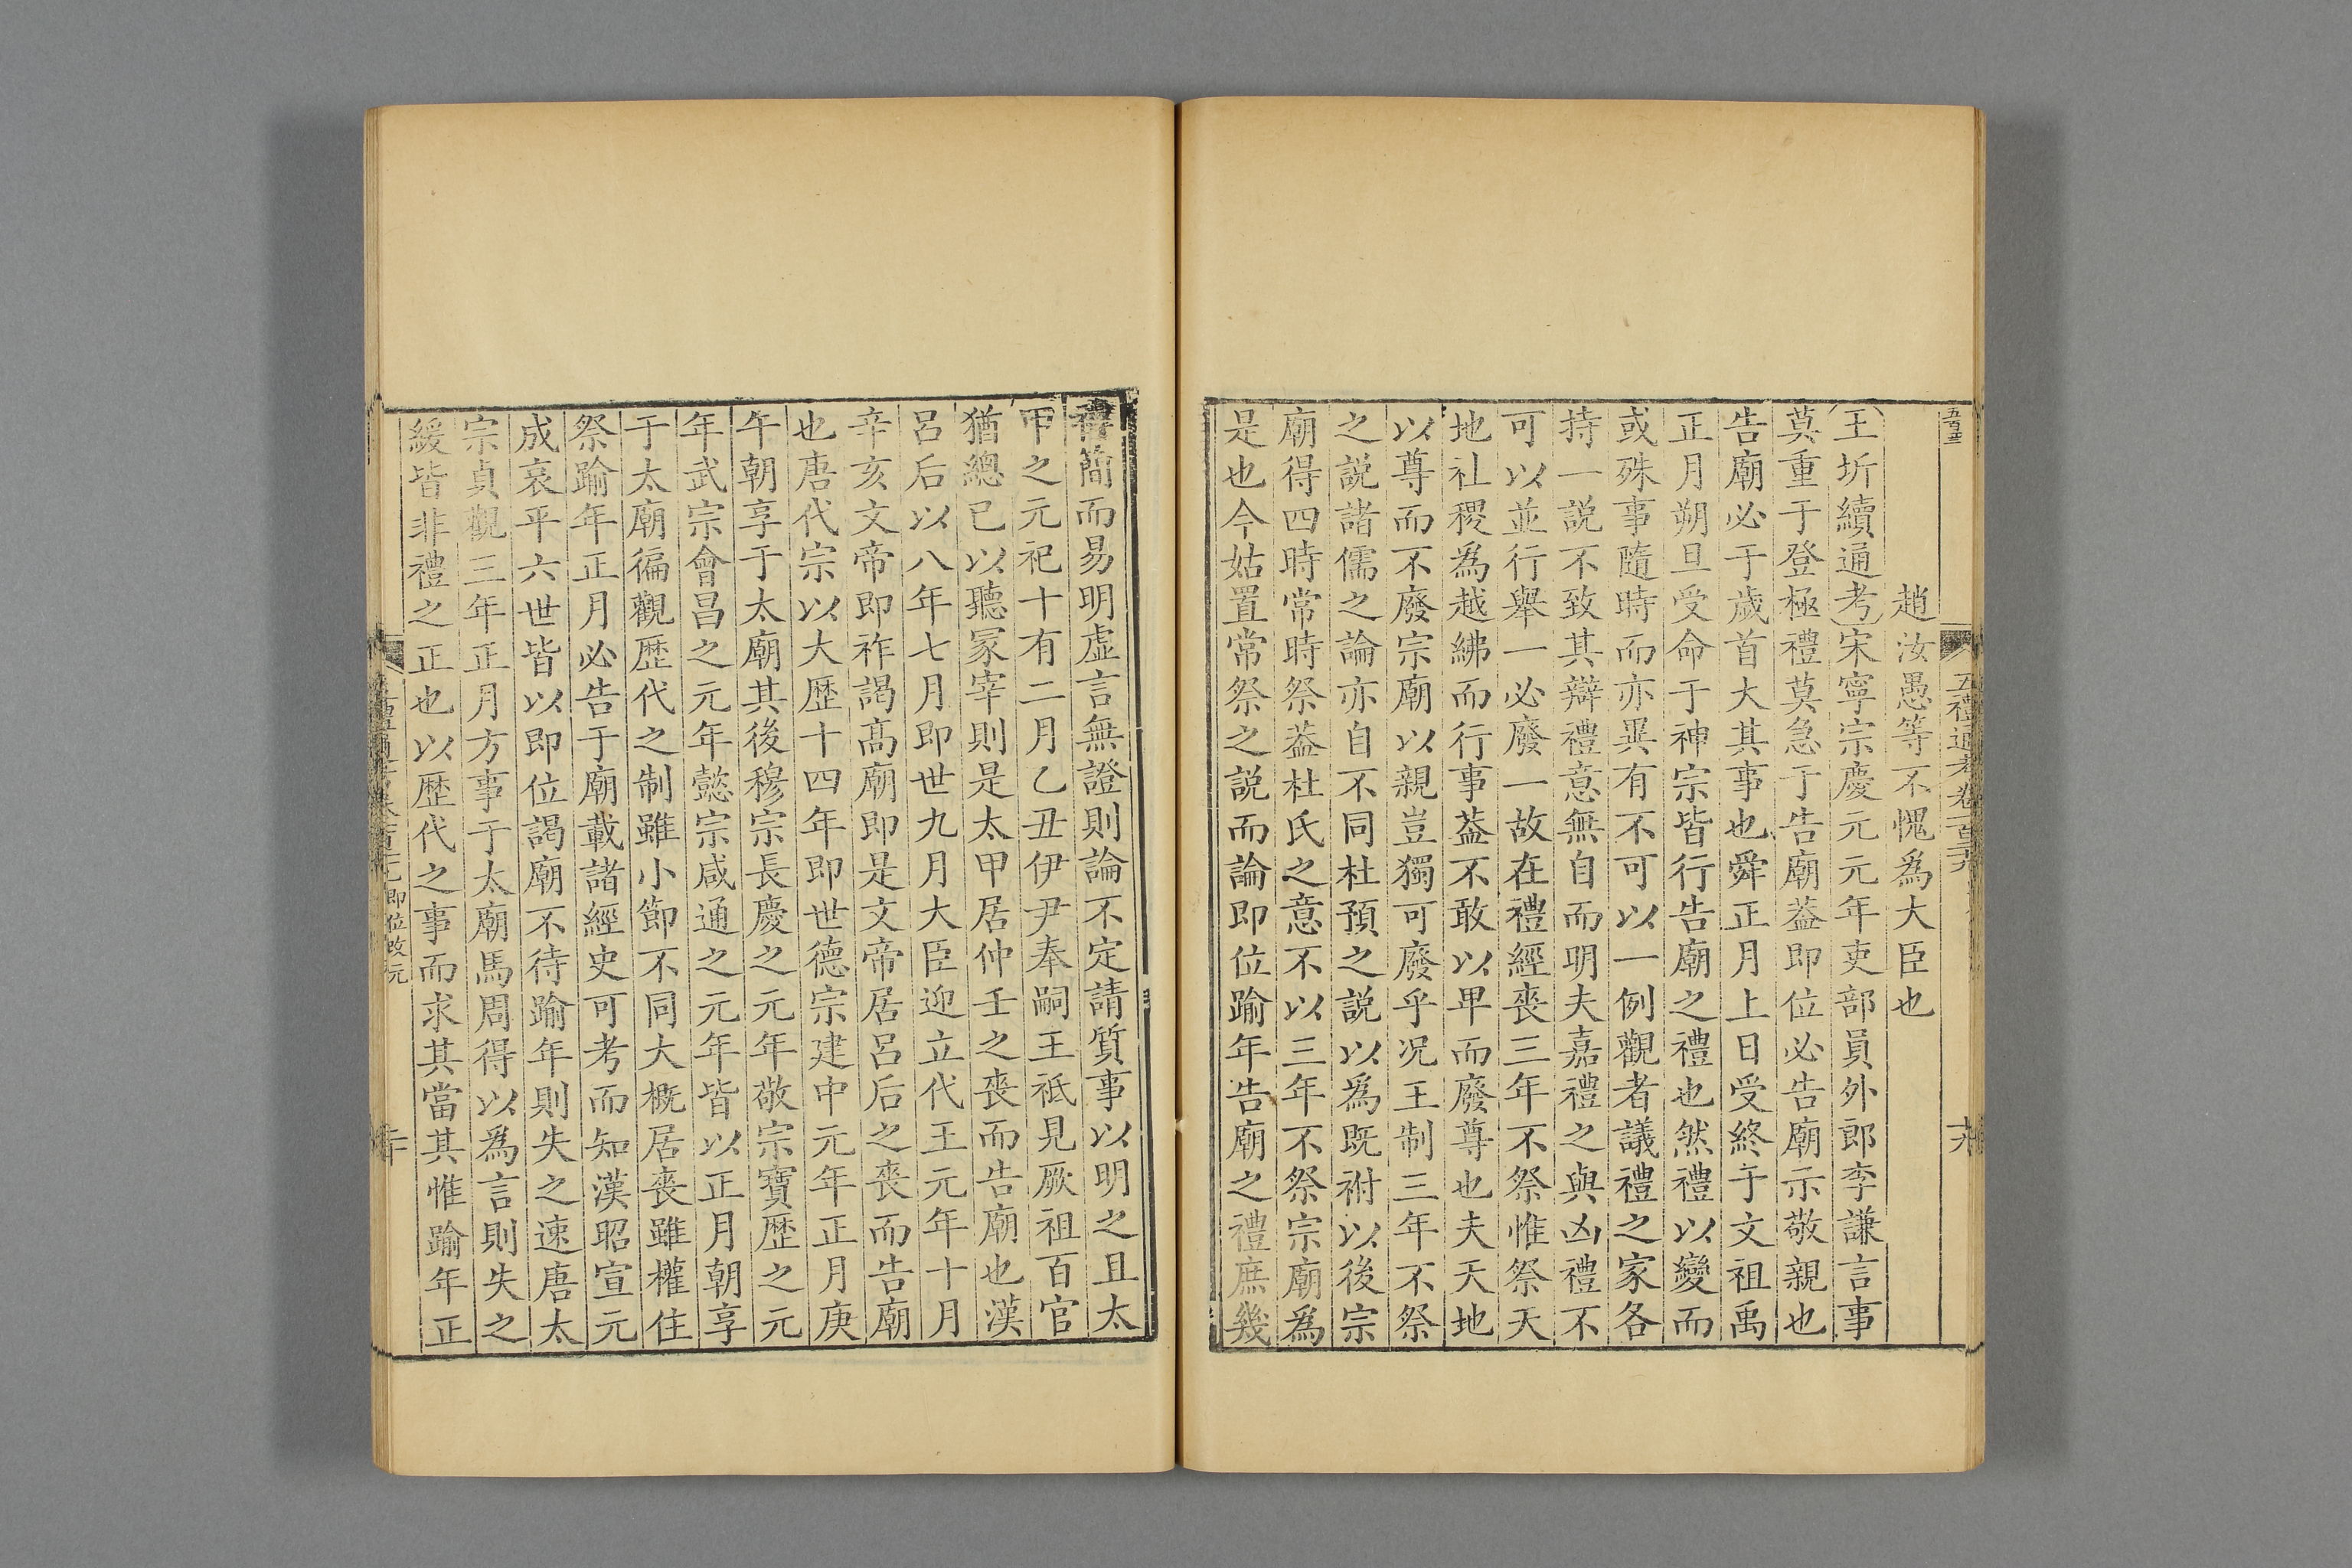 趙汝愚等不愧爲大臣也
王圻續通考宋寧宗慶元元年吏部員外郎李謙言事
莫重于登極禮莫急于告廟葢即位必告廟示敬親也
告廟必于歲首大其事也舜正月上日受終于文祖禹
正月朔旦受命于神宗皆行告廟之禮也然禮以變而
或殊事隨時而亦異有不可以一例觀者議禮之家各
持一説不致其辯禮意無自而明夫嘉禮之與凶禮不
可以並行舉一必廢一故在禮經喪三年不祭惟祭天
地社稷爲越紼而行事葢不敢以卑而廢尊也夫天地
以尊而不廢宗廟以親豈獨可廢乎况王制三年不祭
之説諸儒之論亦自不同杜預之説以爲既祔以後宗
廟得四時常時祭葢杜氏之意不以三年不祭宗廟爲
是也今姑置常祭之説而論即位踰年告廟之禮庶幾
簡而易明虚言無證則論不定請質事以明之且太
甲之元祀十有二月乙丑伊尹奉嗣王祗見厥祖百官
猶總已以聽冢宰則是太甲居仲壬之喪而告廟也漢
呂后以八年七月即世九月大臣迎立代王元年十月
辛亥文帝即祚謁高廟即是文帝居呂后之喪而告廟
也唐代宗以大歷十四年即世德宗建中元年正月庚
午朝享于太廟其後穆宗長慶之元年敬宗寶歷之元
年武宗會昌之元年懿宗咸通之元年皆以正月朝享
于太廟徧觀歷代之制雖小節不同大概居喪雖權住
祭踰年正月必告于廟載諸經史可考而知漢昭宣元
成哀平六世皆以即位謁廟不待踰年則失之速唐太
宗貞觀三年正月方事于太廟馬周得以爲言則失之
緩皆非禮之正也以歷代之事而求其當其惟踰年正
即位改元